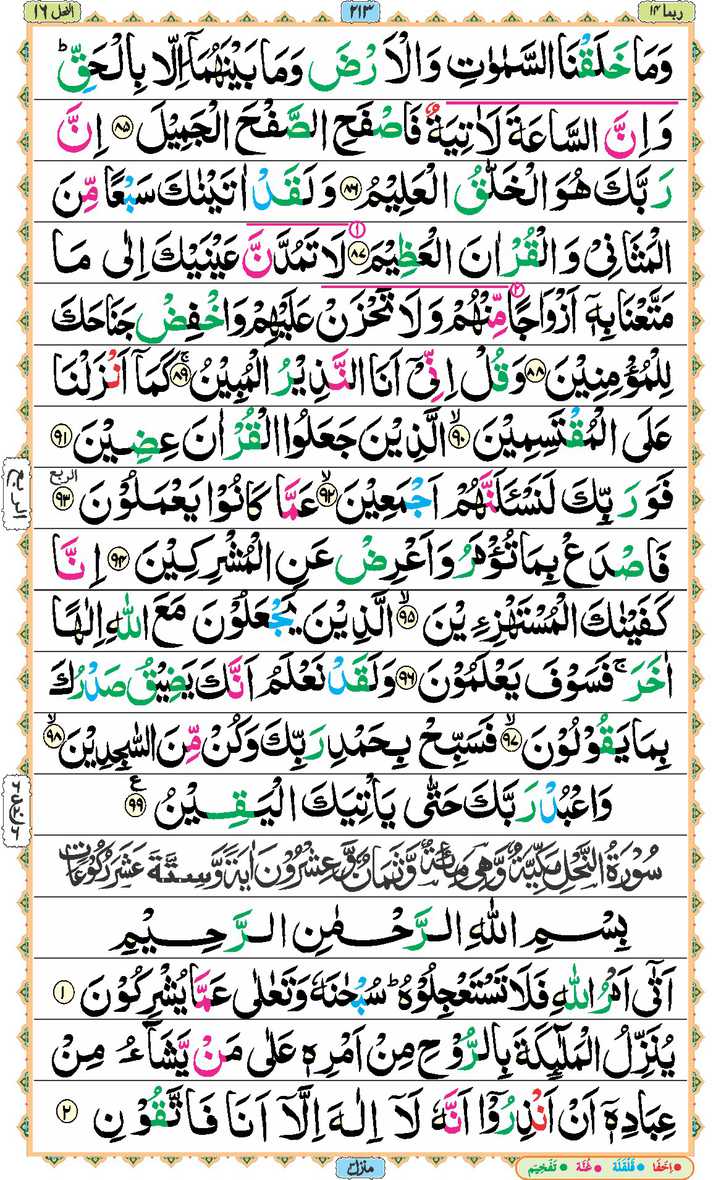 ربما ١٤ ٢١٣ النحل ١٦
وَمَا خَلَقْنَا السَّمٰوٰتِ وَالْاَرْضَ وَمَا بَيْنَهُمَاۤ اِلَّا بِالْحَقِّ ؕ
وَاِنَّ السَّاعَةَ لَاٰتِيَةٌ فَاصْفَحِ الصَّفْحَ الْجَمِيْلَ ٨٥ اِنَّ
رَبَّكَ هُوَ الْخَلّٰقُ الْعَلِيْمُ ٨٦ وَلَقَدْ اٰتَيْنٰكَ سَبْعًا مِّنَ
الْمَثَانِىْ وَالْقُرْاٰنَ الْعَظِيْمَ ٨٧ لَا تَمُدَّنَّ عَيْنَيْكَ اِلٰى مَا
مَتَّعْنَا بِهٖۤ اَزْوَاجًا مِّنْهُمْ وَلَا تَحْزَنْ عَلَيْهِمْ وَاخْفِضْ جَنَاحَكَ
لِلْمُؤْمِنِيْنَ ٨٨ وَقُلْ اِنِّىْۤ اَنَا النَّذِيْرُ الْمُبِيْنُ ۚ ٨٩ كَمَاۤ اَنْزَلْنَا
عَلَى الْمُقْتَسِمِيْنَ ۙ ٩٠ الَّذِيْنَ جَعَلُوا الْقُرْاٰنَ عِضِيْنَ ٩١
فَوَرَبِّكَ لَنَسْـَٔلَنَّهُمْ اَجْمَعِيْنَ ۙ ٩٢ عَمَّا كَانُوْا يَعْمَلُوْنَ الربع ٩٣
الربع
فَاصْدَعْ بِمَا تُؤْمَرُ وَاَعْرِضْ عَنِ الْمُشْرِكِيْنَ ٩٤ اِنَّا
كَفَيْنٰكَ الْمُسْتَهْزِءِيْنَ ۙ ٩٥ الَّذِيْنَ يَجْعَلُوْنَ مَعَ اللّٰهِ اِلٰهًا
اٰخَرَ ۚ فَسَوْفَ يَعْلَمُوْنَ ٩٦ وَلَقَدْ نَعْلَمُ اَنَّكَ يَضِيْقُ صَدْرُكَ
بِمَا يَقُوْلُوْنَ ۙ ٩٧ فَسَبِّحْ بِحَمْدِ رَبِّكَ وَكُنْ مِّنَ السّٰجِدِيْنَ ۙ ٩٨
وَاعْبُدْ رَبَّكَ حَتّٰى يَاْتِيَكَ الْيَقِيْنُ ع ٩٩
سُوْرَةُ النَّحْلِ مَكِّيَّةٌ وَّهِىَ مِائَةٌ وَّثَمَانٌ وَّعِشْرُوْنَ اٰيَةً وَّسِتَّةَ عَشَرَ رُكُوْعَاتٍ
بِسْمِ اللّٰهِ الرَّحْمٰنِ الرَّحِيْمِ
اَتٰۤى اَمْرُ اللّٰهِ فَلَا تَسْتَعْجِلُوْهُ ؕ سُبْحٰنَهٗ وَتَعٰلٰى عَمَّا يُشْرِكُوْنَ ١
يُنَزِّلُ الْمَلٰٓئِكَةَ بِالرُّوْحِ مِنْ اَمْرِهٖ عَلٰى مَنْ يَّشَآءُ مِنْ
عِبَادِهٖۤ اَنْ اَنْذِرُوْۤا اَنَّهٗ لَاۤ اِلٰهَ اِلَّاۤ اَنَا فَاتَّقُوْنِ ٢
اِخْفَا قَلْقَلَة غُنَّة تَفْخِيْم